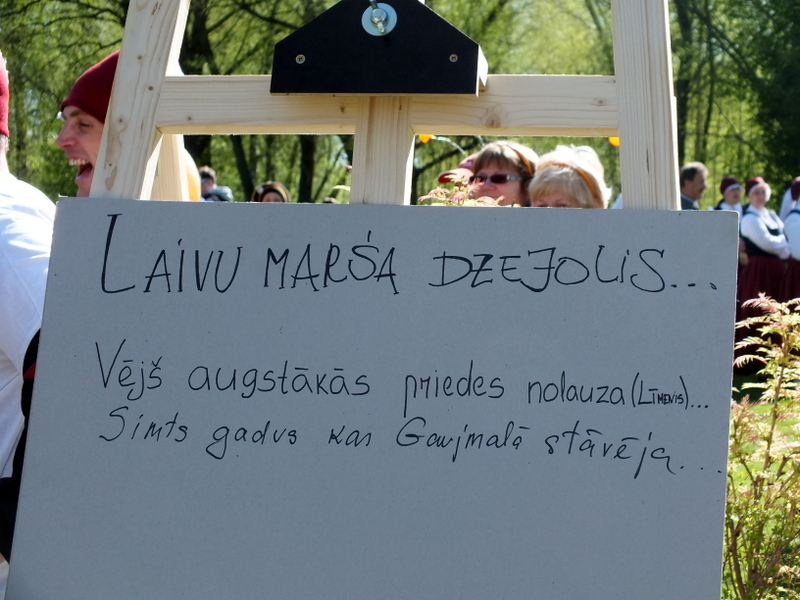 LAIVU MARŠA DZEJOLIS...
Vējš augstākās priedes nolauza (LĪMENIS)...
Simts gadus kas Gaujmalā stāvēja....